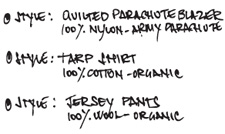 STYLE: QUILTED PARACHUTE BLAZER
100% NYLON - ARMY PARACHUTE
STYLE: TARP SHIRT
100% COTTON - ORGANIC
STYLE: JERSEY PANTS
100% WOOL - ORGANIC